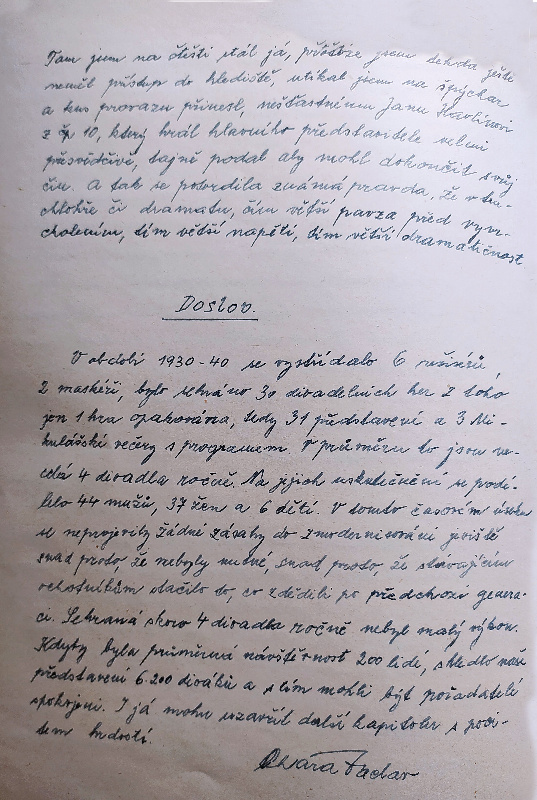 Tam jsem na štěstí stál já, protože jsem tehda ještě
neměl přístup do hlediště, utíkal jsem na špýchar
a kus provazu přinesl, nešťastnému Janu Havlínovi
z čp 10, který hrál hlavního představitele velmi
přesvědčivě, tajně podal aby mohl dokončit svůj
čin. A tak se potvrdila známá pravda, že v tra-
chlohře či dramatu, čím větší pavza před vyvr-
cholením, tím větší napětí, tím větší dramatičnost
Doslov.
V období 1930-40 se vystřídalo 6 režisérů,
2 maskéři, bylo sehráno 30 divadelních her z toho
jen 1 hra opakována, tedy 31 představení a 3 Mi-
kulášské večery s programem. V průměru to jsou ve-
celá 4 divadla ročně. Na jejich uskutečnění se podí-
lelo 44 mužů, 37 žen a 6 dětí. V tomto časovém úseku
se neprojevily žádné zásahy do zmodernisování jeviště
snad proto, že nebyly nutné, snad proto, že stávajícím
ochotníkům stačilo to, co zdědili po předchozí genera-
ci. Sehraná skoro 4 divadla ročně nebyl malý výkon.
Kdyby byla průměrná návštěvnost 200 lidí, shledlo naše
představení 6.200 diváků a s tím mohli být pořadatelé
spokojeni. I já mohu uzavřít další kapitolu s poci-
tem hrdosti.